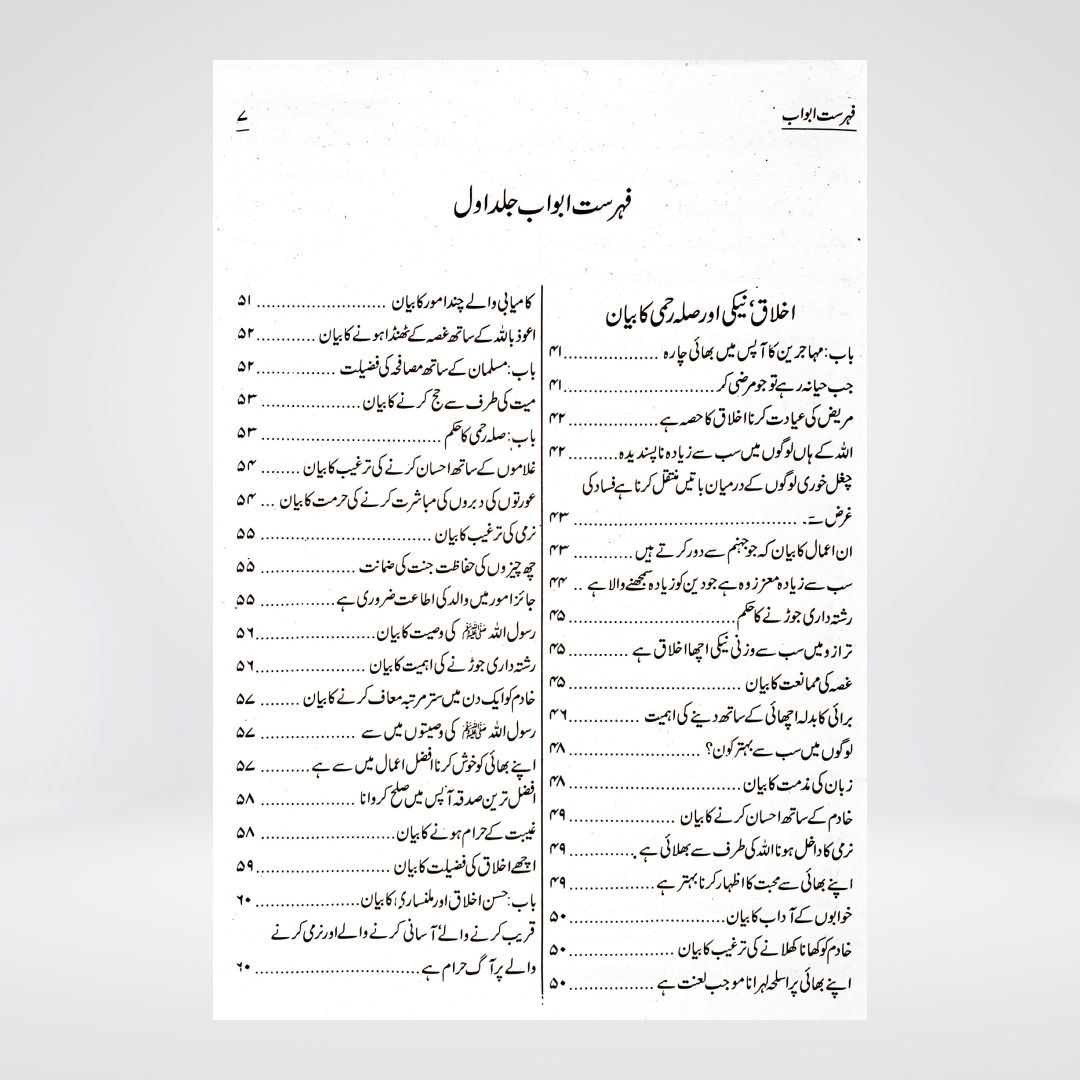 فہرست ابواب
۷
فہرست ابواب جلد اول
اخلاق، نیکی اور صلہ رحمی کا بیان
باب: مہاجرین کا آپس میں بھائی چارہ ................... ۴۱
جب حیا نہ رہے تو جو مرضی کر .............................. ۴۱
مریض کی عیادت کرنا اخلاق کا حصہ ہے .................. ۴۲
اللہ کے ہاں لوگوں میں سب سے زیادہ ناپسندیدہ .......... ۴۲
چغل خوری لوگوں کے درمیان باتیں منتقل کرنا ہے فساد کی
غرض سے۔ ............................................ ۴۳
ان اعمال کا بیان کہ جو جہنم سے دور کرتے ہیں ............ ۴۳
سب سے زیادہ معزز وہ ہے جو دین کو زیادہ سمجھنے والا ہے .. ۴۴
رشتہ داری جوڑنے کا حکم ................................. ۴۵
ترازو میں سب سے وزنی نیکی اچھا اخلاق ہے ............ ۴۵
غصہ کی ممانعت کا بیان .................................. ۴۵
برائی کا بدلہ اچھائی کے ساتھ دینے کی اہمیت .............. ۴۶
لوگوں میں سب سے بہتر کون؟ .......................... ۴۸
زبان کی مذمت کا بیان .................................. ۴۸
خادم کے ساتھ احسان کرنے کا بیان ..................... ۴۹
نرمی کا داخل ہونا اللہ کی طرف سے بھلائی ہے ............. ۴۹
اپنے بھائی سے محبت کا اظہار کرنا بہتر ہے ................. ۴۹
خوابوں کے آداب کا بیان ............................... ۵۰
خادم کو کھانا کھلانے کی ترغیب کا بیان ..................... ۵۰
اپنے بھائی پر اسلحہ لہرانا موجب لعنت ہے ................. ۵۰
کامیابی والے چند امور کا بیان .......................... ۵۱
اعوذ باللہ کے ساتھ غصہ کے ٹھنڈا ہونے کا بیان ............ ۵۲
باب: مسلمان کے ساتھ مصافحہ کی فضیلت ................ ۵۲
میت کی طرف سے حج کرنے کا بیان .................... ۵۳
باب: صلہ رحمی کا حکم .................................... ۵۳
غلاموں کے ساتھ احسان کرنے کی ترغیب کا بیان ........ ۵۴
عورتوں کی دبروں کی مباشرت کرنے کی حرمت کا بیان ... ۵۴
نرمی کی ترغیب کا بیان .................................. ۵۵
چھ چیزوں کی حفاظت جنت کی ضمانت ................... ۵۵
جائز امور میں والد کی اطاعت ضروری ہے ............... ۵۵
رسول اللہ ﷺ کی وصیت کا بیان ........................ ۵۶
رشتہ داری جوڑنے کی اہمیت کا بیان ..................... ۵۶
خادم کو ایک دن میں ستر مرتبہ معاف کرنے کا بیان ........ ۵۷
رسول اللہ ﷺ کی وصیتوں میں سے ..................... ۵۷
اپنے بھائی کو خوش کرنا افضل اعمال میں سے ہے .......... ۵۷
افضل ترین صدقہ آپس میں صلح کروانا ................... ۵۸
غیبت کے حرام ہونے کا بیان ........................... ۵۸
اچھے اخلاق کی فضیلت کا بیان .......................... ۵۹
باب: حسن اخلاق اور ملنساری کا بیان .................... ۶۰
قریب کرنے والے، آسانی کرنے والے اور نرمی کرنے
والے پر آگ حرام ہے ................................ ۶۰